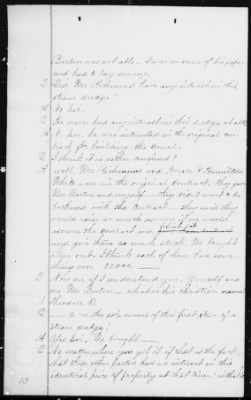 Barton was not able. I was on some of his paper
and had to pay money.
Q Did Mr. Richmond have any interest in this
steam dredge?
A No sir.
Q He never had any interest in this dredge at all?
A No sir. he was interested in the original con-
tract for building the canal.
Q I think it is rather confused?
A Well, Mr Richmond and Horace & Hamilton
White were in the original contract. They got
Mr Barton and myself. They didn't want to be
bothered with the contract. They said they
would give so much
assume the contract and finish it
and give them so much stock. We bought
them out. I think each of them had some
thing over $2000.
Q Now as I understand you. Yourself and
one Mr Barton — what is his christian name?
A Theodore D.
Q — were the sole owners of this first item of a
steam dredge?
A Yes sir, We bought —
Q No matter where you got it if that is the fact,
that these other parties had no interest in this
identical piece of property at that time: is that so
13